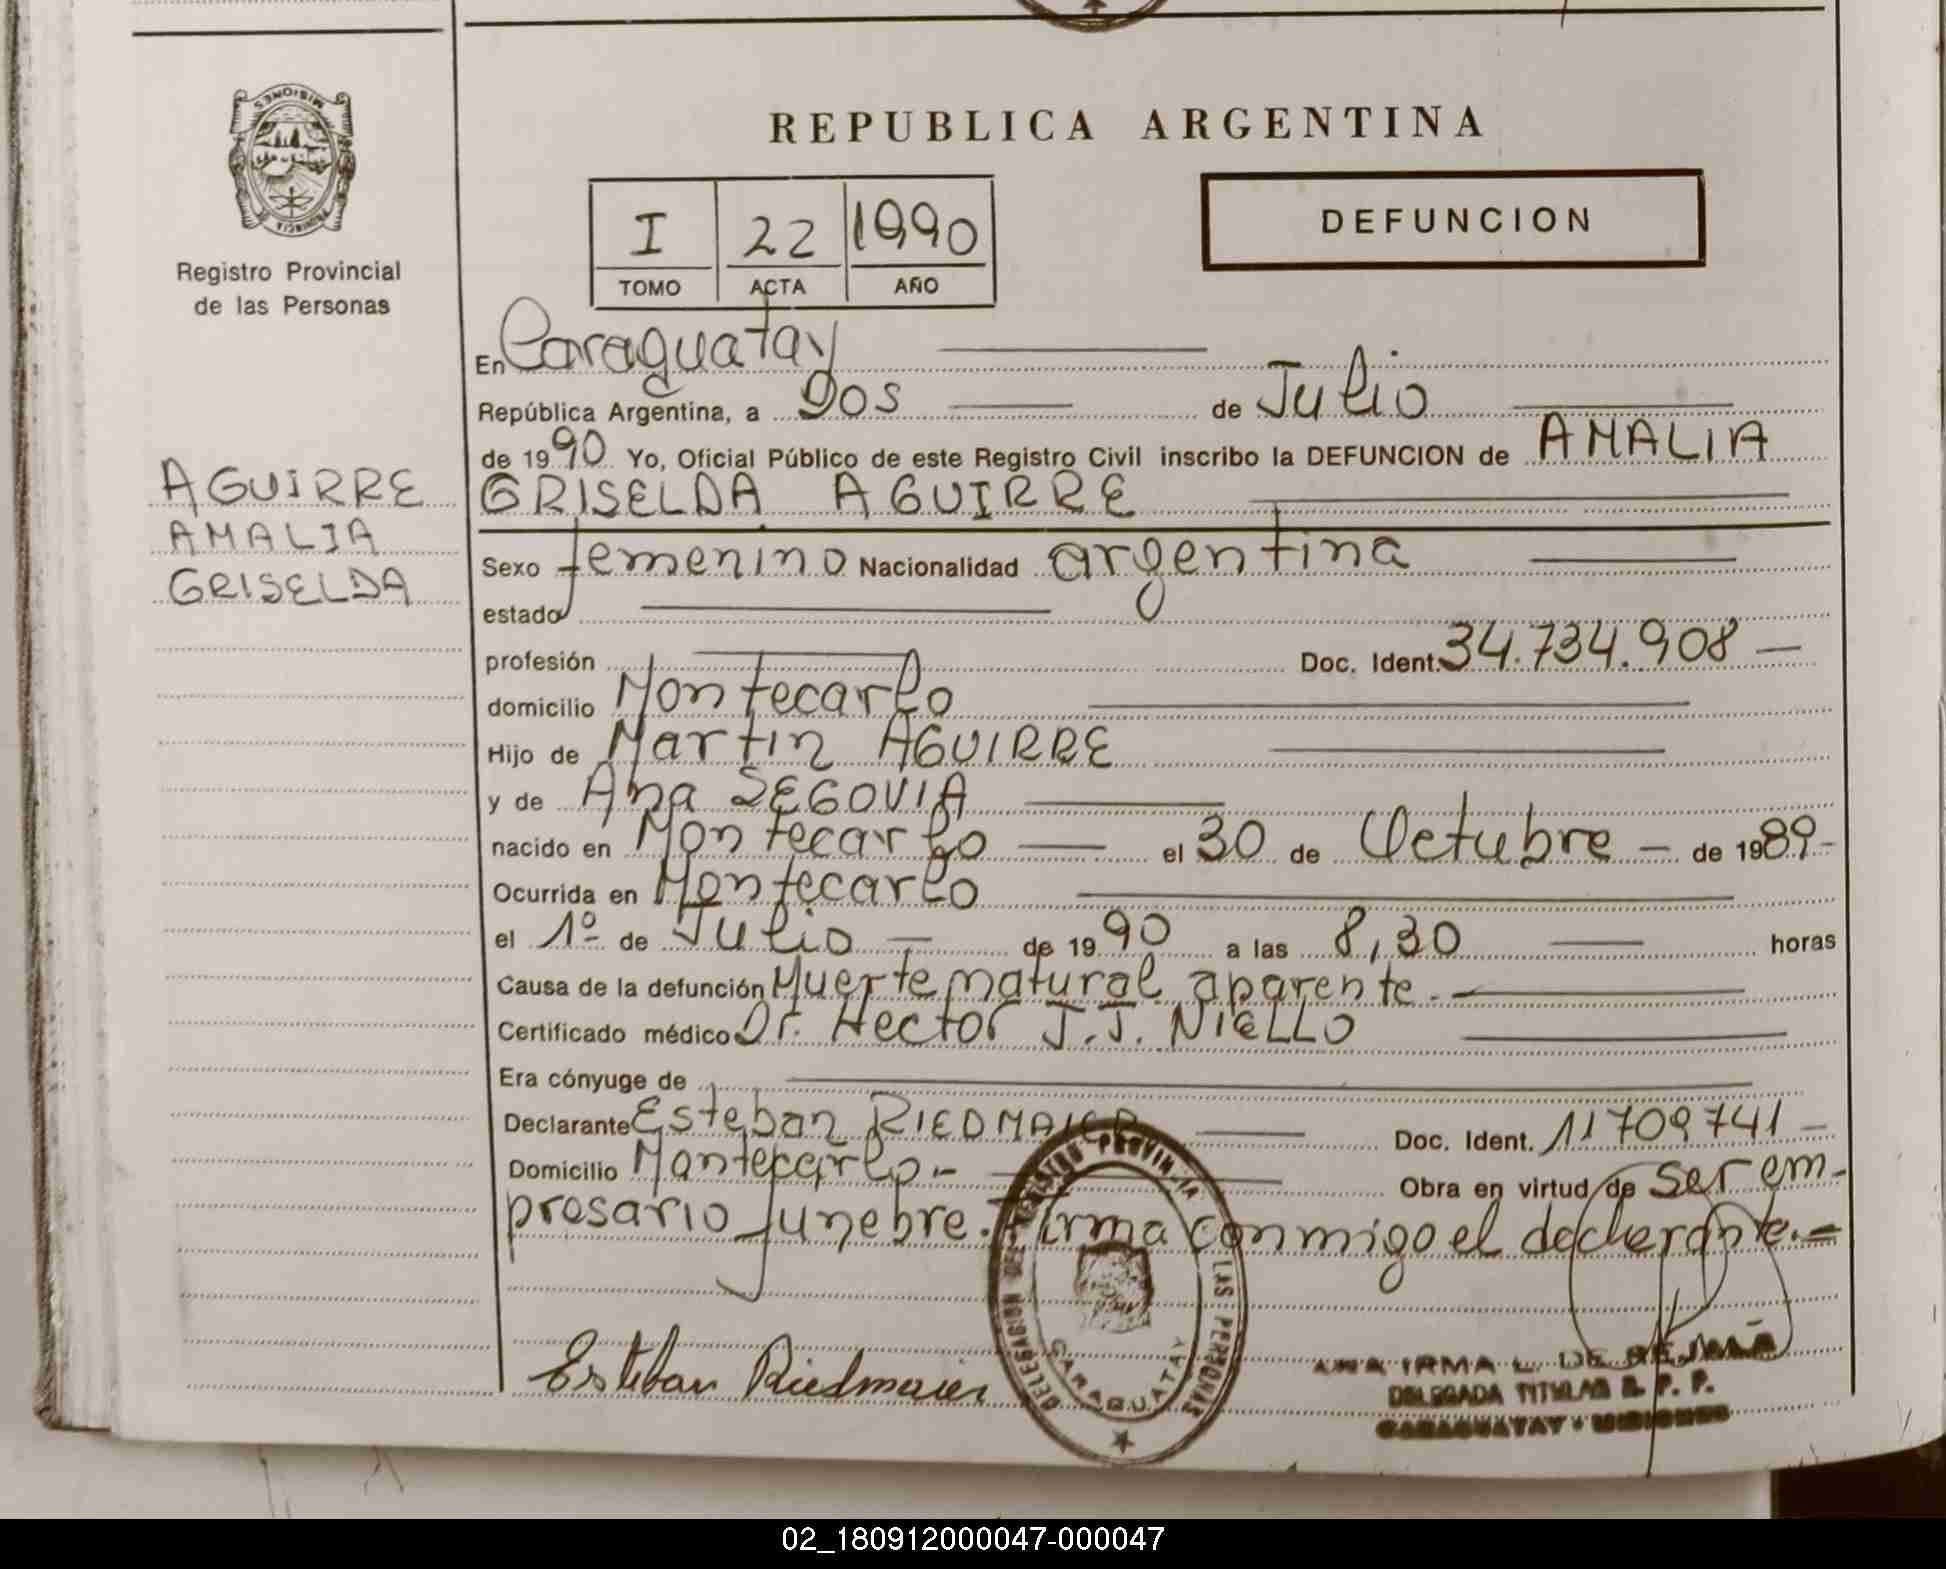 MISIONES
PROVINCIA
Registro Provincial
de las Personas
AGUIRRE
AMALIA
GRISELDA
REPUBLICA ARGENTINA
I 22 1990
TOMO ACTA AÑO
DEFUNCION
En Caraguatay
República Argentina, a Dos de Julio
de 1990 Yo, Oficial Público de este Registro Civil inscribo la DEFUNCION de AMALIA
GRISELDA AGUIRRE
Sexo femenino Nacionalidad argentina
estado
profesión Doc. Ident. 34.734.908 —
domicilio Montecarlo
Hijo de Martin AGUIRRE
y de Ana SEGOVIA
nacido en Montecarlo — el 30 de Octubre — de 1989 -
Ocurrida en Montecarlo
el 1º de Julio — de 1990 a las 8,30 horas
Causa de la defunción Muerte natural aparente. —
Certificado médico Dr. Hector J.J. NIELLO
Era cónyuge de
Declarante Esteban RIEDMAIER Doc. Ident. 11709741 —
Domicilio Montecarlo.- Obra en virtud de ser em-
presario funebre. Firma conmigo el declarante.=
Esteban Riedmaier
DELEGACION DEL REGISTRO PROVINCIAL LAS PERSONAS
CARAGUATAY
ANA IRMA L. DE
DELEGADA TITULAR R. P. P.
CARAGUATAY - MISIONES
02_180912000047-000047